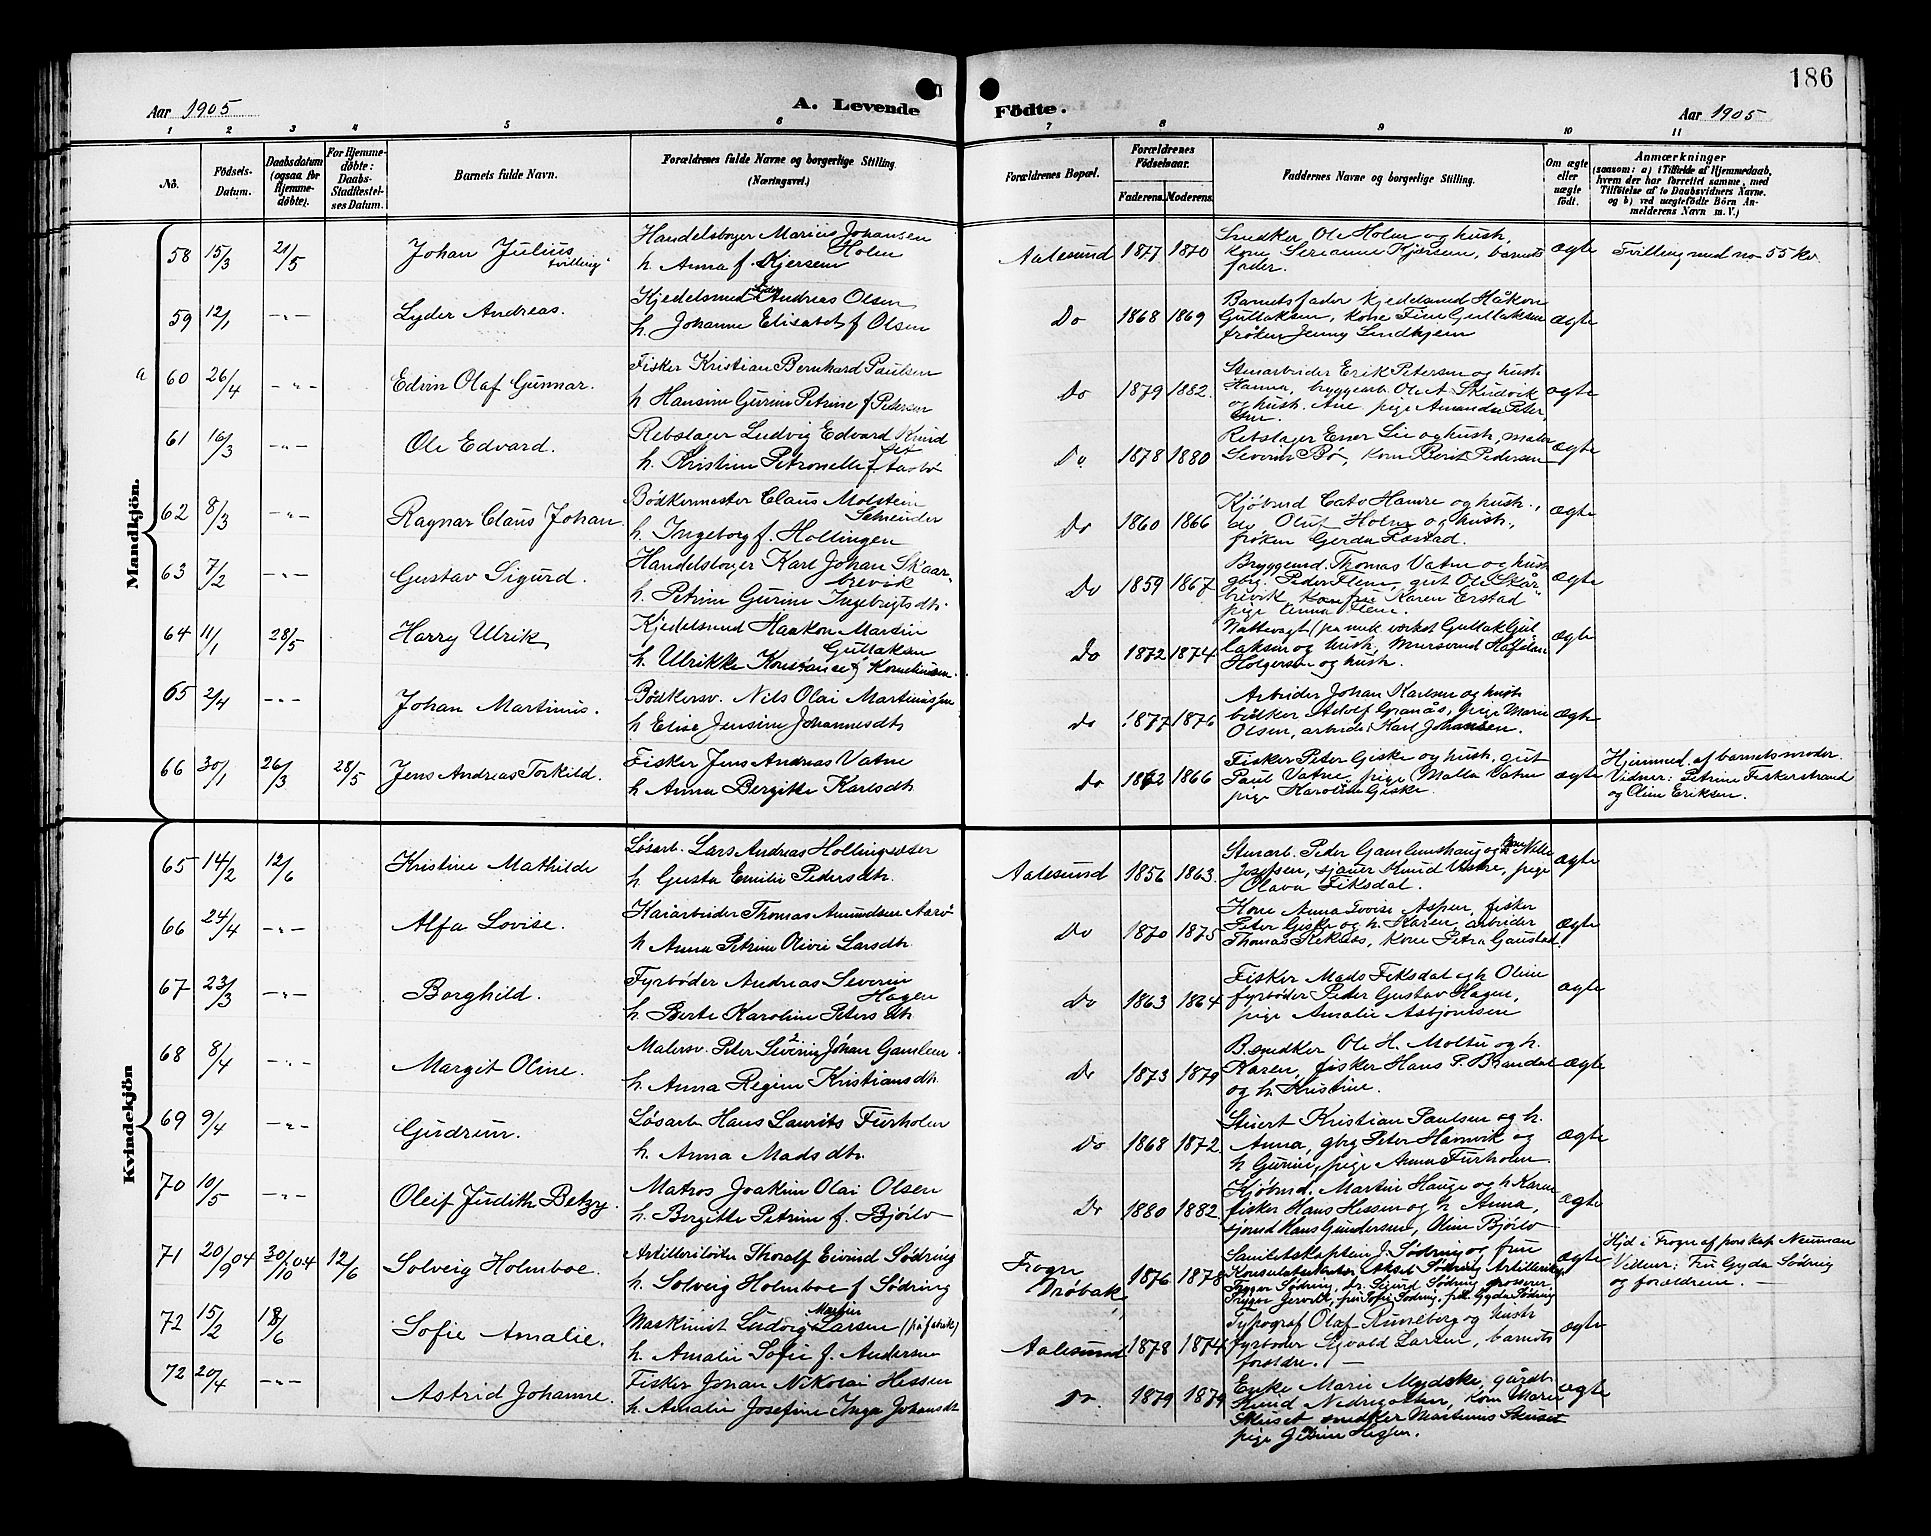 186
Aar 1905
A. Levende
Födte.
Aar 1905
1 2 3 4 5 6 7 8 9 10 11
No.
Födsels-Datum.
Daabsdatum (ogsaa for Hjemmedøbte).
For Hjemmedøbte: Daabs-Stadfestelses Datum.
Barnets fulde Navn.
Forældrenes fulde Navne og borgerlige Stilling (Næringsvei.)
Forældrenes Bopæl.
Forældrenes Födselsaar.
Faderens. Moderens.
Faddernes Navne og borgerlige Stilling.
Om ægte eller uægte födt.
Anmærkninger
(saasom: a) i Tilfælde af Hjemmedaab, hvem der har forrettet samme, med Tilföielse af to Daabsvidners Navne, og b) ved uægtefödte Börn Anmelderens Navn m. V.)
Mandkjön.
58 15/3 21/5 Johan Julius tvilling
Handelsborger Marius Johansen Holm
h. Anna f. Kjersem
Aalesund 1877 1870
Snedker Ole Holm og hustr,
kone Serianne Kjersem, barnets
fader.
ægte
Tvilling med no 55 kv.
59 12/1 -"- Lyder Andreas.
Kjedelsmed Lyder Andreas Olsen
h. Johanne Elisabet f Olsen
Do 1868 1869
Barnets fader kjedelsmed Håkon
Gullaksen, kone Fine Gullaksen
frøken Jenny Lindhjem
ægte
a 60 26/4 -"- Edvin Olaf Gunnar.
Fisker Kristian Bernhard Paulsen
h Hansine Gurine Petrine f Pedersen
Do 1879 1882.
Stenarbeider Erik Petersen og hustr
Hanna, byggearb. Ole A. Skudvik
og hustr. Ane, pige Amanda Peter
sen
ægte
61 16/3 -"- Ole Edvard.
Rebslager Ludvig Edvard Knud
h. Kristine Petronelle f Aarbø
Do 1878 1880
Rebslager Ener Lie og hustr, maler
Severin Bø, kone Berit Pedersen
ægte
62 8/3 -"- Ragnar Claus Johan
Bödkermester Claus Molstein
Schreuder
h. Ingeborg f. Hollingen
Do 1860 1866
Kjöbmd Cato Hamre og hustr.,
do Oluf Holm og hustr,
frøken Gerda Røstad.
ægte
63 7/2 -"- Gustav Sigurd.
Handelsborger Karl Johan Skaar-
brevik
h. Petrine Gurine Ingebrigtsdtr.
Do 1859 1867
Bryggemd. Thomas Vatne og hust
gbrg. Peder Flem, gut Ole Skår-
brevik fru Karen Erstad
pige Anna Flem.
ægte
64 11/1 28/5 Harry Ulrik
Kjedelsmed Haakon Martin
Gullaksen
h. Ulrikke Konstance f Korneliussen.
Do 1872 1874
Nattevagt (pa mek værket Gullak Gul
laksen og hustr, mursvend
Holgersen og hustr.
ægte
65 2/4 -"- Johan Martinus.
Bödkersv. Nils Olai Martinussen
h Elise Jensine Johannesdtr
do 1877 1876
Arbeider Johan Karlsen og hustr
bödker Adolf Granås, pige Marie
Olsen, arbeider Karl Johansen.
ægte
66 30/1 26/3 28/5 Jens Andreas Torkild.
Fisker Jens Andreas Vatne
h Anna Bergitte Karlsdtr
Do 1862 1866
Fisker Peter Giske og hustr, gut
Paul Vatne, pige Malla Vatne
pige Karoline Giske.
ægte
Hjemmed. af barnets moder.
Vidner: Petrine Fiskerstrand
og Oline Eriksen.
Kvindekjön
65 14/2 12/6 Kristine Mathilde
Løsarb. Lars Andreas Hollingsæter
h Gusta Emilie Pedersdtr.
Aalesund 1856 1863.
Stenarb. Peder Gamlemshaug og Nille
Josefsen, sjauer Knud Vestre, pige
Olava Fiksdal.
ægte
66 24/4 -"- Alfa Lovise.
Kaiarbeider Thomas Amundsen Aarø
h Anna Petrine Olivie Larsdtr.
Do 1870 1875
Kone Anna Lovise Aspen, fisker
Peter Giske og h. Karen, arbeider
Thomas Reknes, kone Petra Gaustad
ægte
67 23/3 -"- Borghild.
Fyrbøder Andreas Severin
Hagen
h. Berte Karoline Petersdtr
Do 1863 1864
Fisker Mads Fiksdal og h Oline
fyrbøder Peder Gustav Hagen,
pige Amalie Asbjørnsen
ægte
68 8/4 -"- Margit Oline.
Malersv. Peter Severin Johan Gamlem
h. Anna Regine Kristiansdtr.
Do 1873 1879
B.snedker Ole H. Moltu og h.
Karen, fisker Hans P. Brandal
og h. Kristine.
ægte
69 9/4 -"- Gudrun.
Løsarb Hans Laurits Furholm
h. Anna Madsdtr.
Do 1868 1872
Stuert Kristian Paulsen og h.
Anna, gbrg Peter Hamvik og
h Gurine, pige Anna Furholm
ægte
70 10/5 -"- Oleif Judith Betzy.
Matros Joakim Olai Olsen
h. Bergitte Petrine f. Bjørlo
Do 1880 1882
Kjøbmd. Martin Hauge og h Karen
fisker Hans Hessen og h Anna,
sjømd Hans Gundersen, Oline Bjørlo
ægte
71 20/9 04 30/10 04 12/6 Solveig Holmboe.
Artilleriløitn Thoralf Eivind Sødring
h. Solveig Holmboe f Sødring
Frogn
Drøbak, 1876 1878
Sanitetskaptein J. Sødring og frue
ægte
Hjd i Frogn af pers kap Neuman
Vidner: Fru Gyda Sødring
og forældrene. -
72 15/2 18/6 Sofie Amalie.
Maskinist Ludvig Martin Larsen (på fabrik)
h. Amalie Sofie f. Andersen
Aalesund 1878 1874
Typograf Olaf Runeberg og hustr
fyrbøder Egvald Larsen, barnets
foreldre. -
ægte
72 20/4 -"- Astrid Johanne.
Fisker Johan Nikolai Hessen
h. Amalie Josefine Inga Johansdtr
Do. 1879 1879
Enke Marie Mydske, gårdb.
Knud Nedregotten, kone Maren
Skuset snedker Martinus Skuset
pige Jesine Hessen.
ægte